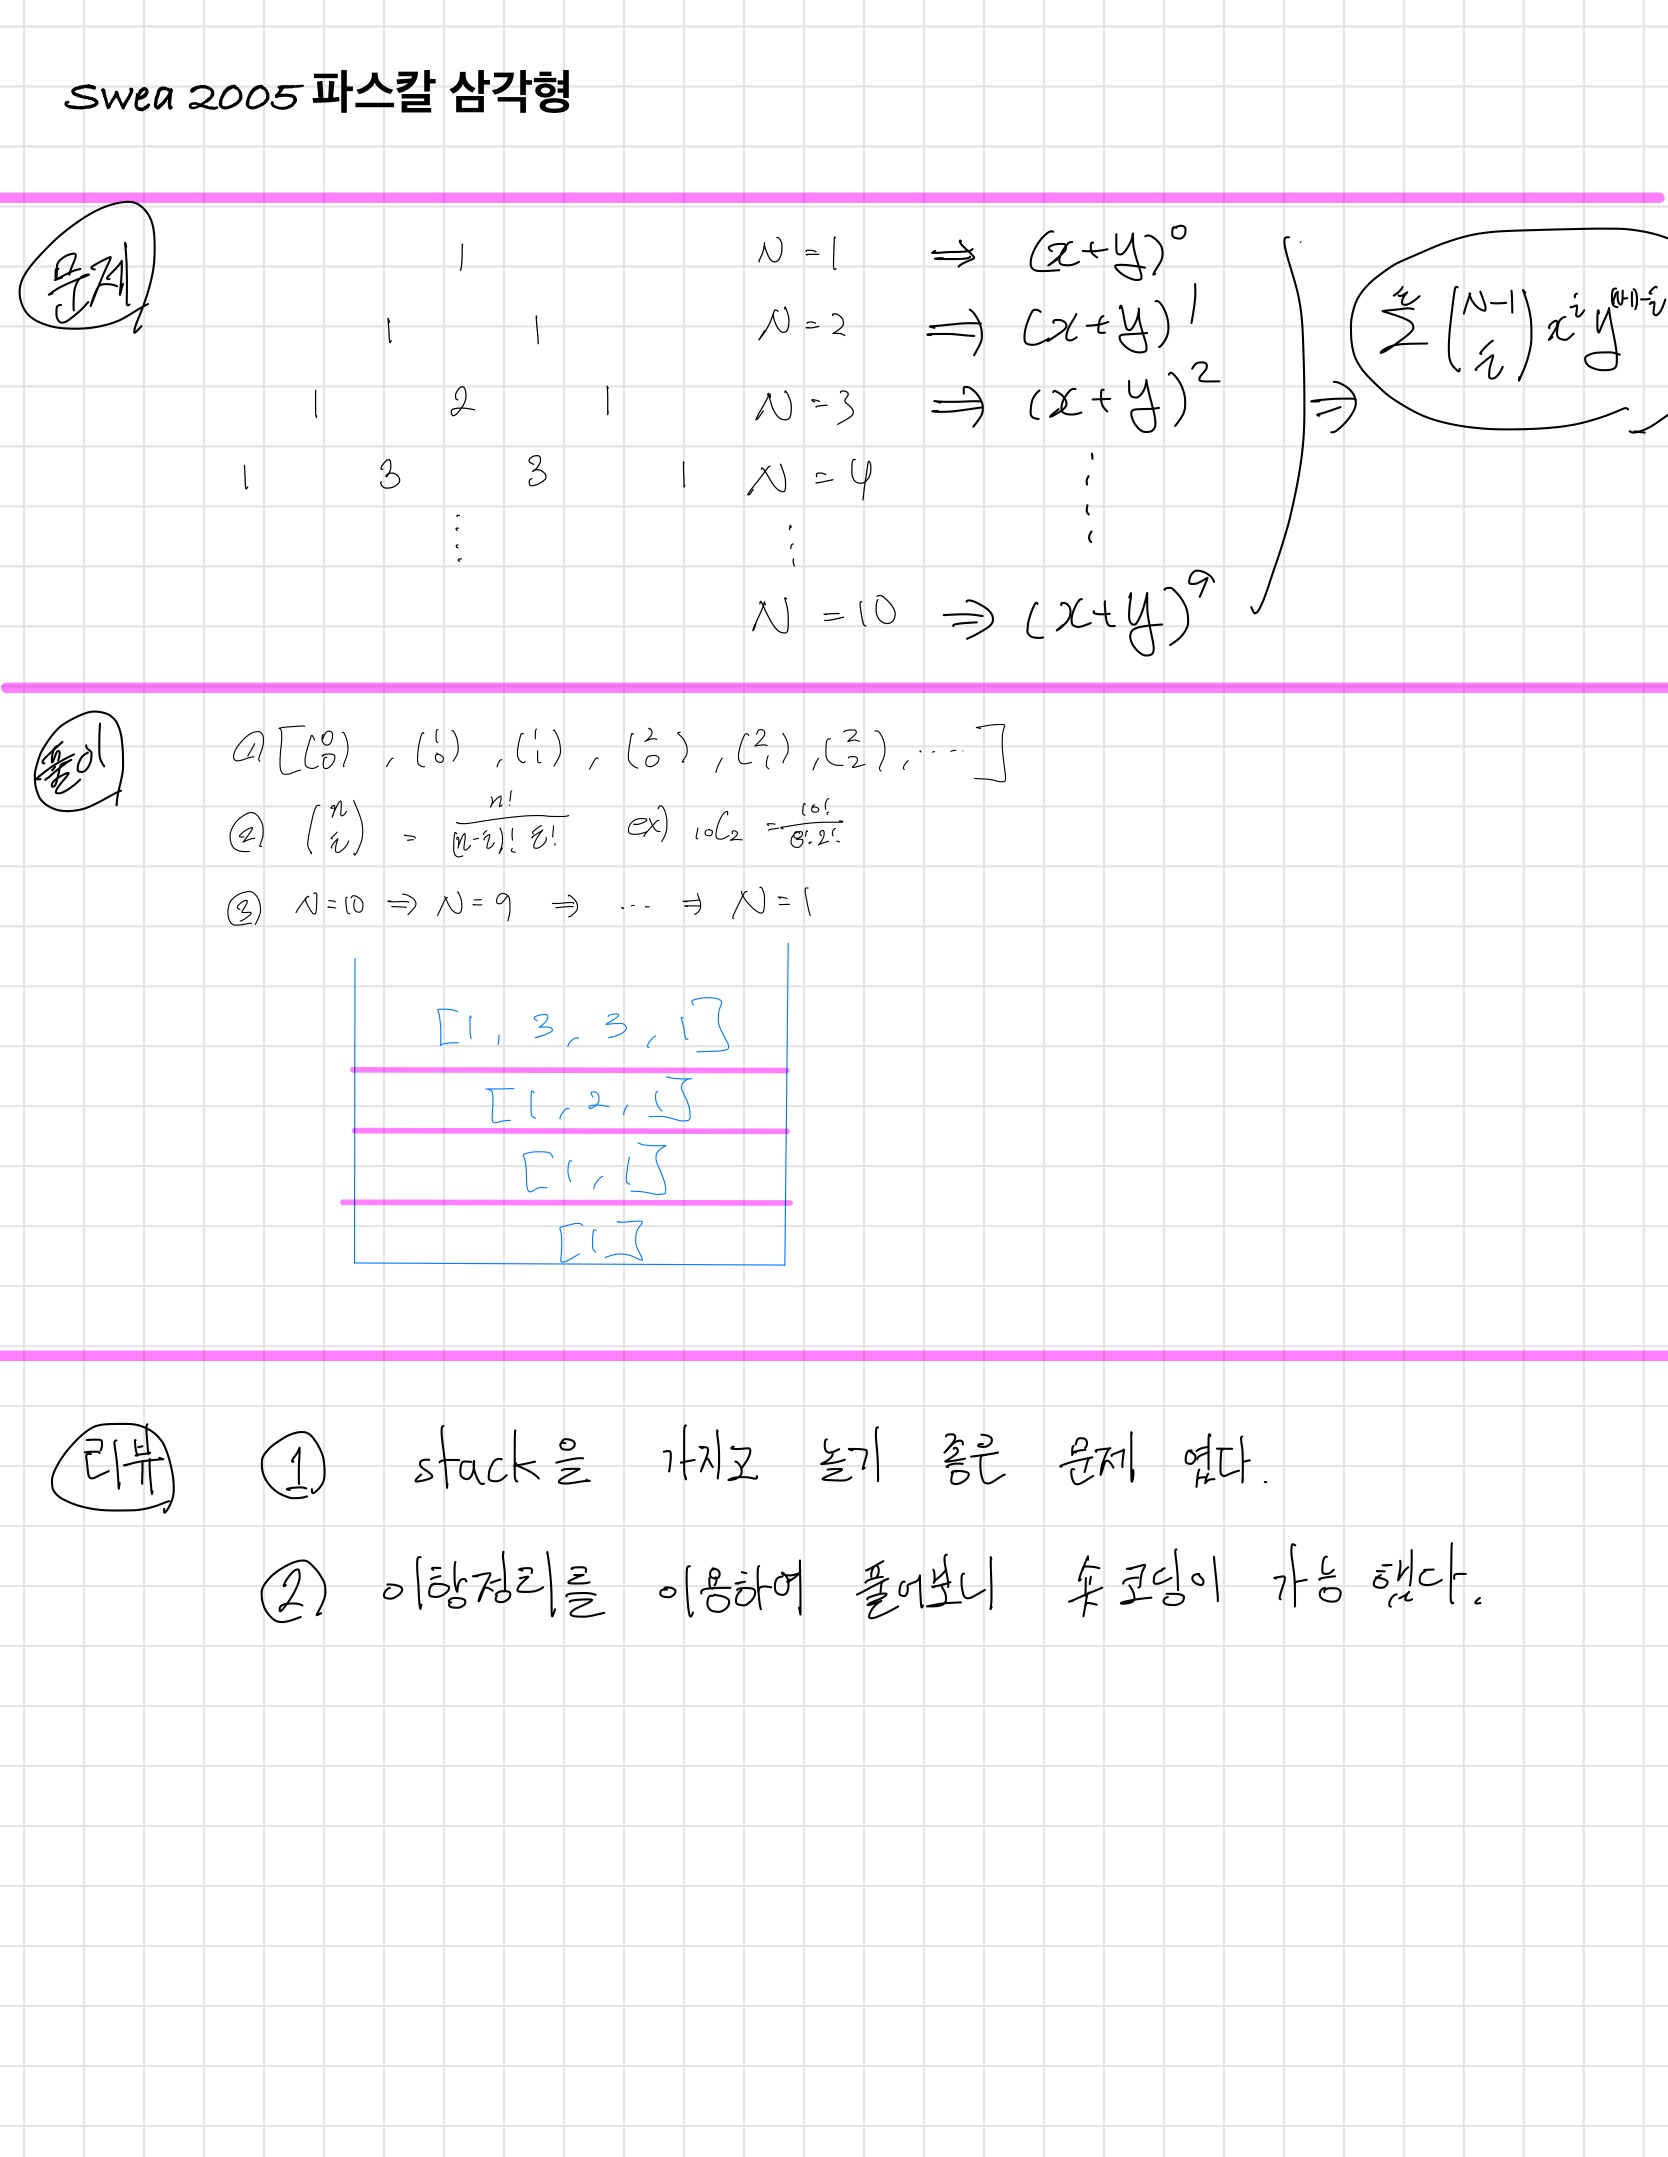 swea 2005 파스칼 삼각형
문제
1 N=1 ⇒ (x+y)⁰
1 1 N=2 ⇒ (x+y)¹
⇒ Σ (N-1 i) xⁱ y⁽ᴺ⁻¹⁾⁻ⁱ
1 2 1 N=3 ⇒ (x+y)²
1 3 3 1 N=4
N=10 ⇒ (x+y)⁹
풀이
① [(0 0), (1 0), (1 1), (2 0), (2 1), (2 2), ....]
② (n i) = n! / (n-i)! i! ex) ₁₀C₂ = 10! / 8!·2!
③ N=10 ⇒ N=9 ⇒ ... ⇒ N=1
[1, 3, 3, 1]
[1, 2, 1]
[1, 1]
[1]
리뷰
① stack을 가지고 놀기 좋은 문제 였다.
② 이항정리를 이용하여 풀어보니 숏코딩이 가능했다.